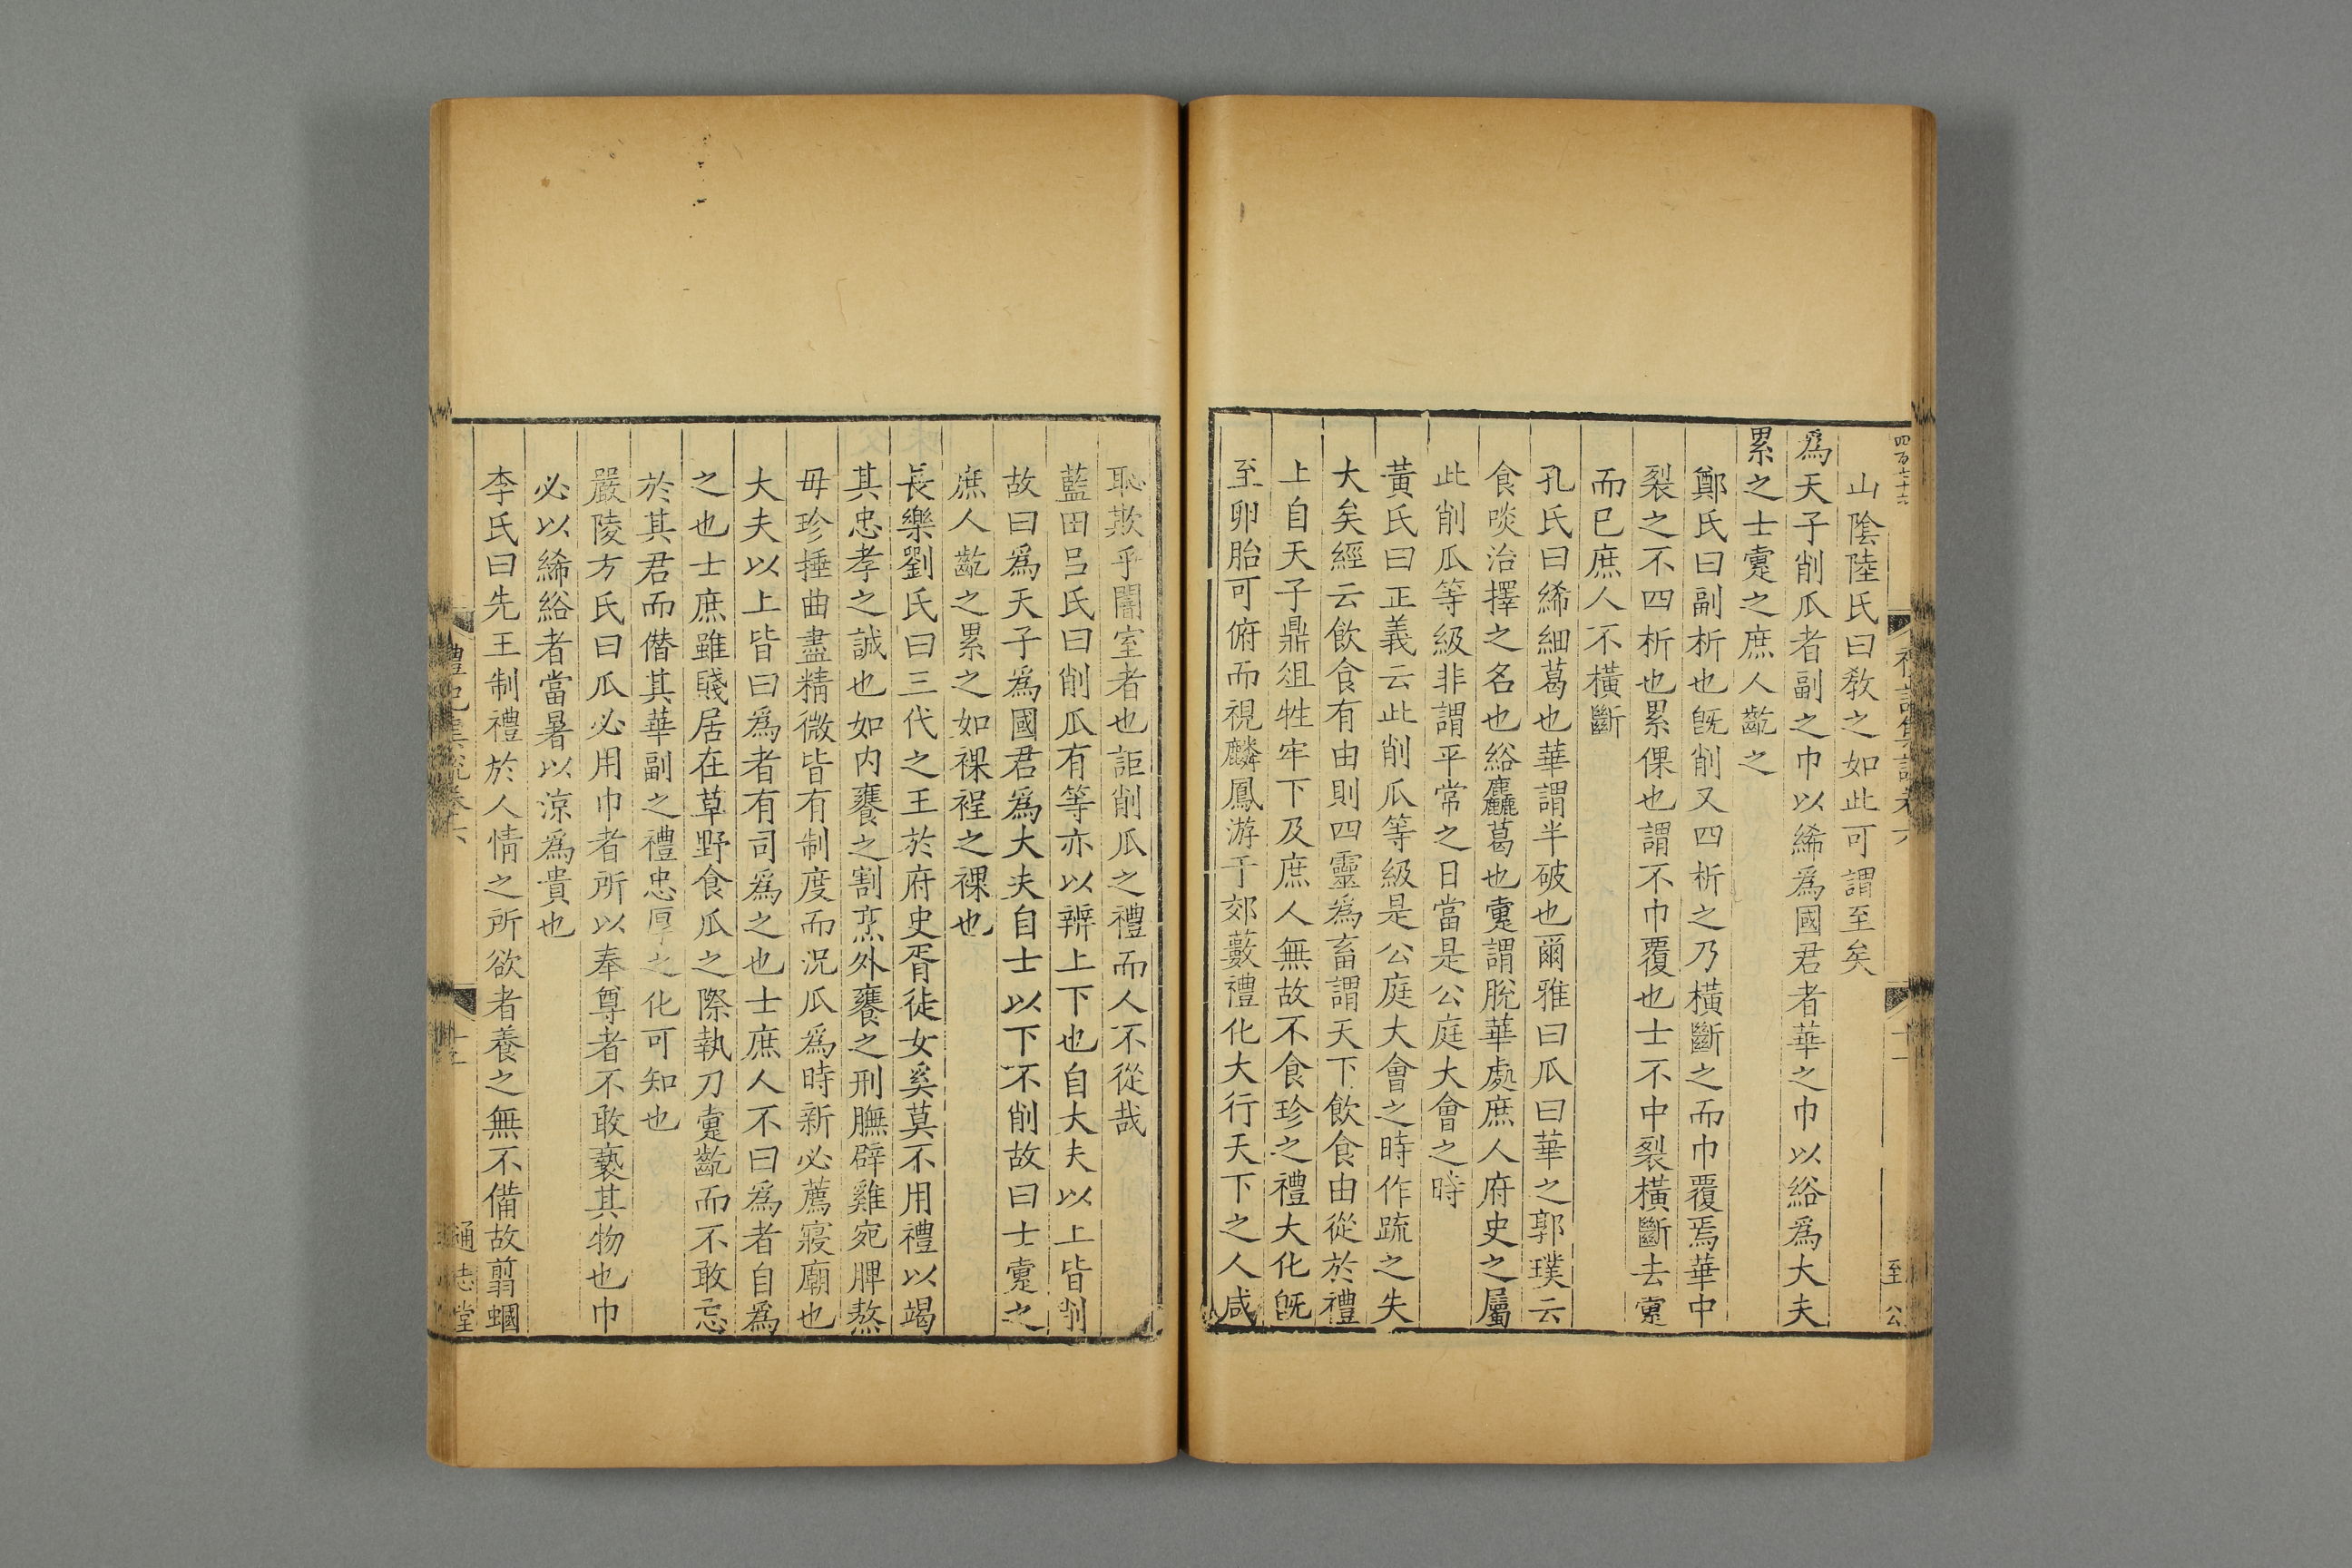 四百七十六
山陰陸氏曰敎之如此可謂至矣
爲天子削瓜者副之巾以絺爲國君者華之巾以綌爲大夫
累之士疐之庶人齕之
鄭氏曰副析也旣削又四析之乃橫斷之而巾覆焉華中
裂之不四析也累倮也謂不巾覆也士不中裂橫斷去疐
而已庶人不橫斷
孔氏曰絺細葛也華謂半破也爾雅曰瓜曰華之郭璞云
食啖治擇之名也綌麤葛也疐謂脫華處庶人府史之屬
此削瓜等級非謂平常之日當是公庭大會之時
黃氏曰正義云此削瓜等級是公庭大會之時作疏之失
大矣經云飲食有由則四靈爲畜謂天下飲食由從於禮
上自天子鼎俎牲牢下及庶人無故不食珍之禮大化旣
至卵胎可俯而視麟鳳游于郊藪禮化大行天下之人咸
恥欺乎闇室者也詎削瓜之禮而人不從哉
藍田呂氏曰削瓜有等亦以辨上下也自大夫以上皆削
故曰爲天子爲國君爲大夫自士以下不削故曰士疐之
庶人齕之累之如裸裎之裸也
長樂劉氏曰三代之王於府史胥徒女奚莫不用禮以竭
其忠孝之誠也如内饔之割烹外饔之刑膴辟雞宛脾熬
毋珍捶曲盡精微皆有制度而況瓜爲時新必薦寢廟也
大夫以上皆曰爲者有司爲之也士庶人不曰爲者自爲
之也士庶雖賤居在草野食瓜之際執刀疐齕而不敢忘
於其君而僭其華副之禮忠厚之化可知也
嚴陵方氏曰瓜必用巾者所以奉尊者不敢褻其物也巾
必以絺綌者當暑以涼爲貴也
李氏曰先王制禮於人情之所欲者養之無不備故翦蟈
禮記集說卷六
通志堂